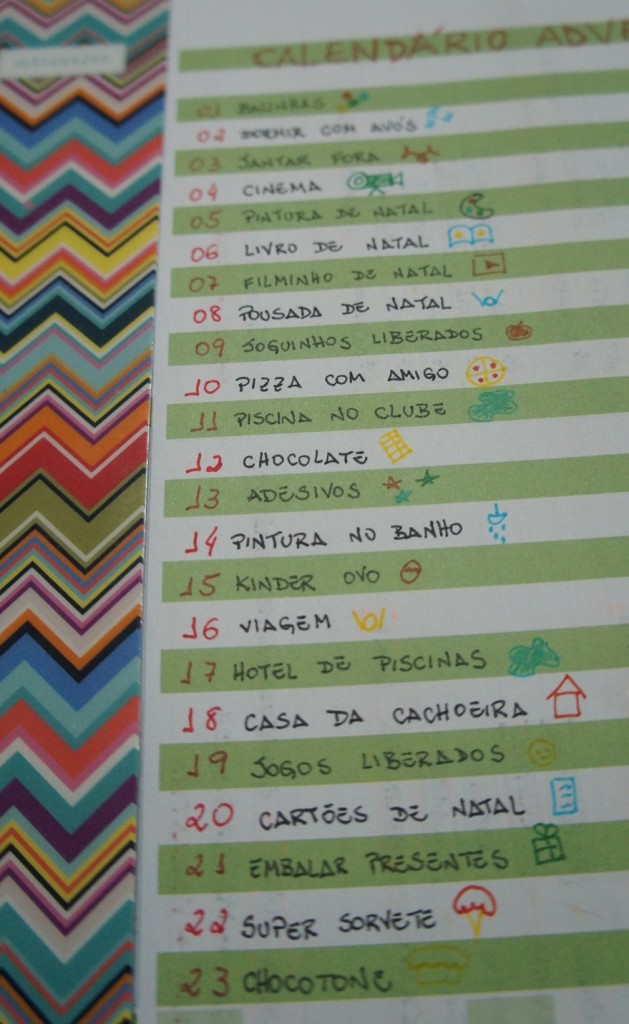 CALENDÁRIO ADVE
01 BALINHAS
02 DORMIR COM AVÓS
03 JANTAR FORA
04 CINEMA
05 PINTURA DE NATAL
06 LIVRO DE NATAL
07 FILMINHO DE NATAL
08 POUSADA DE NATAL
09 JOGUINHOS LIBERADOS
10 PIZZA COM AMIGO
11 PISCINA NO CLUBE
12 CHOCOLATE
13 ADESIVOS
14 PINTURA NO BANHO
15 KINDER OVO
16 VIAGEM
17 HOTEL DE PISCINAS
18 CASA DA CACHOEIRA
19 JOGOS LIBERADOS
20 CARTÕES DE NATAL
21 EMBALAR PRESENTES
22 SUPER SORVETE
23 CHOCOTONE